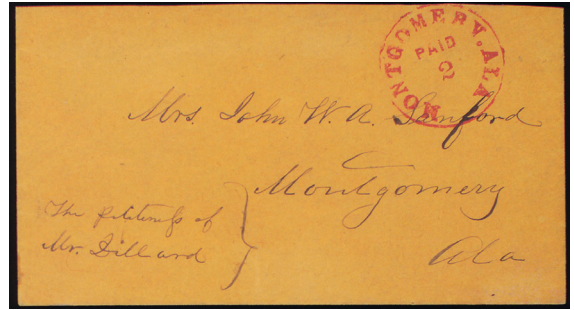 MONTGOMERY. ALA
PAID
2
Mrs. John W. A. Sanford
Montgomery
Ala
The politeness of
Mr. Dillard